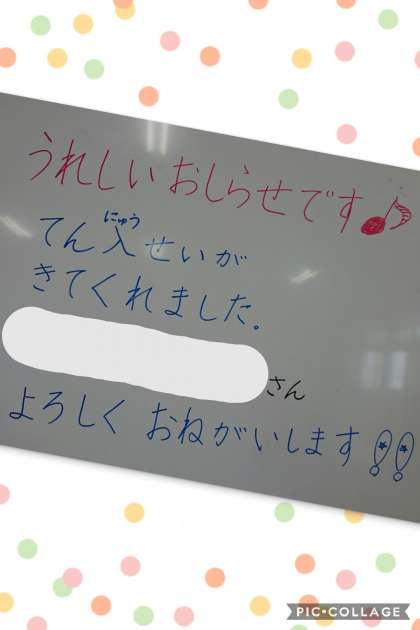 うれしいおしらせです♪
てん入せいが
にゅう
きてくれました。
さん
よろしく おねがいします!!
PIC•COLLAGE